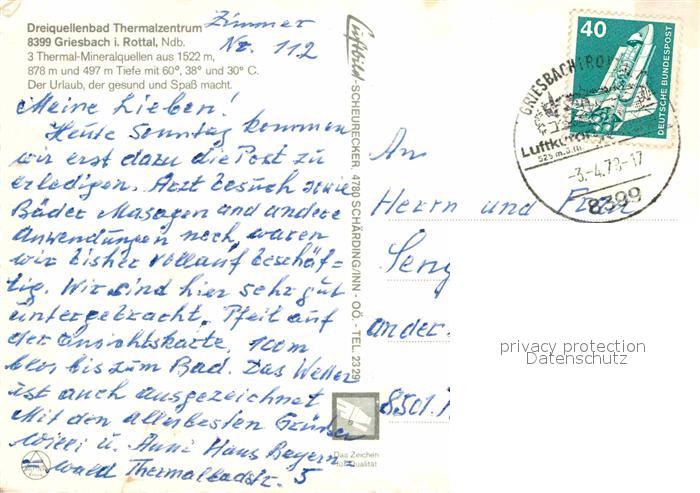 Zimmer
Nr. 112
Dreiquellenbad Thermalzentrum
8399 Griesbach i. Rottal, Ndb.
3 Thermal-Mineralquellen aus 1522 m,
878 m und 497 m Tiefe mit 60°, 38° und 30° C.
Der Urlaub, der gesund und Spaß macht.
Meine Lieben!
Heute Sonntag kommen
wir erst dazu die Post zu
erledigen. Arzt besuch sowie
Bäder Masagen und andere
Anwendungen noch, waren
wir bisher vollauf beschäf=
tig. Wir sind hier sehr gut
untergebracht. Pfeil auf
der Ansichtskarte, 100m
blos bis zum Bad. Das Wetter
ist auch ausgezeichnet
Mit den allerbesten Grüßen
Willi u. Anni Haus Bayern=
wald Thermalbadstr. 5
Luftbild-SCHEURECKER, 4780 SCHÄRDING/INN - OÖ. - TEL. 2329
Das Zeichen
für Qualität
40
DEUTSCHE BUNDESPOST
GRIESBACH i ROT
Luftkurort
525 m.ü.M
-3.-4.78-17
8399
An
Herrn und Frau
ander
8501
privacy protection
Datenschutz